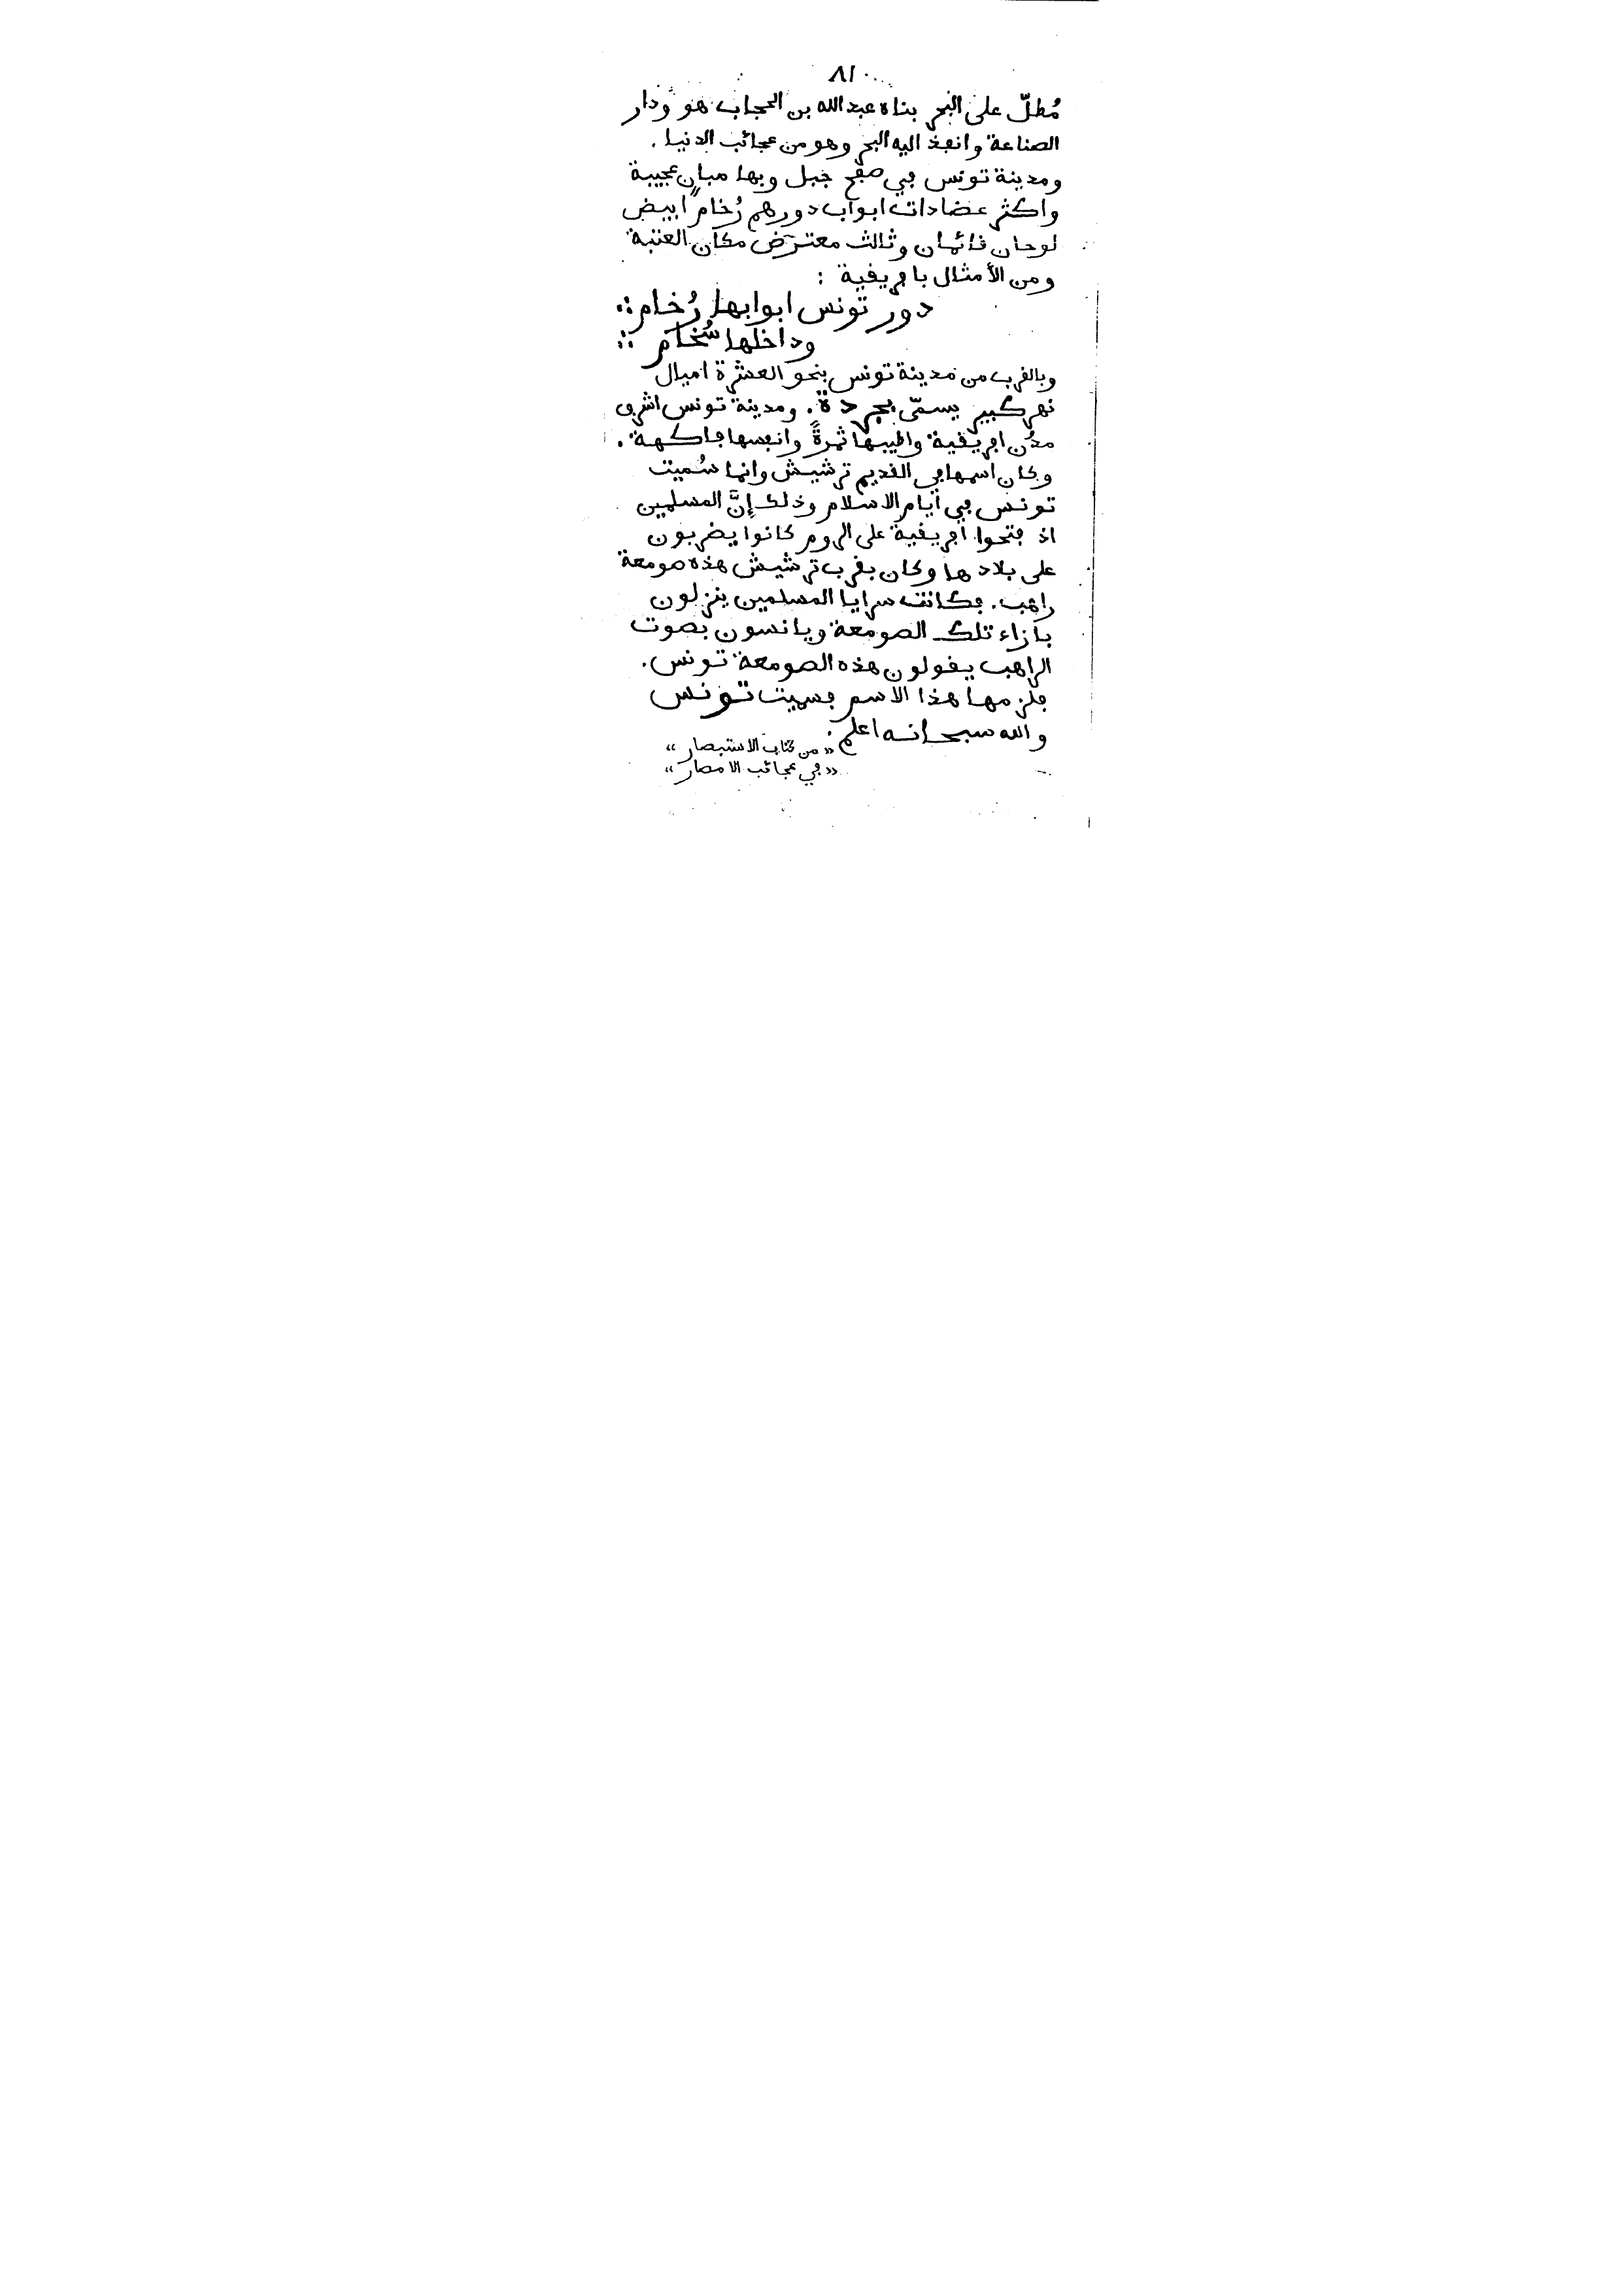 ٨١
مُطلّ على البحر بناه عبد الله بن الحجاب هو ودار
الصناعة وانفذ اليه البحر وهو من عجائب الدنيا.
ومدينة تونس في صفح جبل وبها مبان عجيبة
واكثر عضادات ابواب دورهم رُخامٌ ابيض
لوحان قائمان وثالث معترض مكان العتبة
ومن الأمثال بافريقية :
دور تونس ابوابها رُخام ∴
وداخلها سُخام ∴
وبالقرب من مدينة تونس بنحو العشرة اميال
نهر كبير يسمّى بجردة. ومدينة تونس اشرف
مدُن افريقية واطيبها ثمرةً وانفسها فاكهة.
وكان اسمها في القديم ترشيش وانما سُميت
تونس في ايام الاسلام وذلك إنَّ المسلمين
اذ فتحوا افريقية على الروم كانوا يضربون
على بلادها وكان بقرب ترشيش هذه صومعة
راهب. فكانت سرايا المسلمين ينزلون
بازاء تلك الصومعة ويانسون بصوت
الراهب يقولون هذه الصومعة تونس.
فلزمها هذا الاسم فسميت تونس
والله سبحانه اعلم.
«من كتاب الاستبصار»
«في عجائب الامصار»